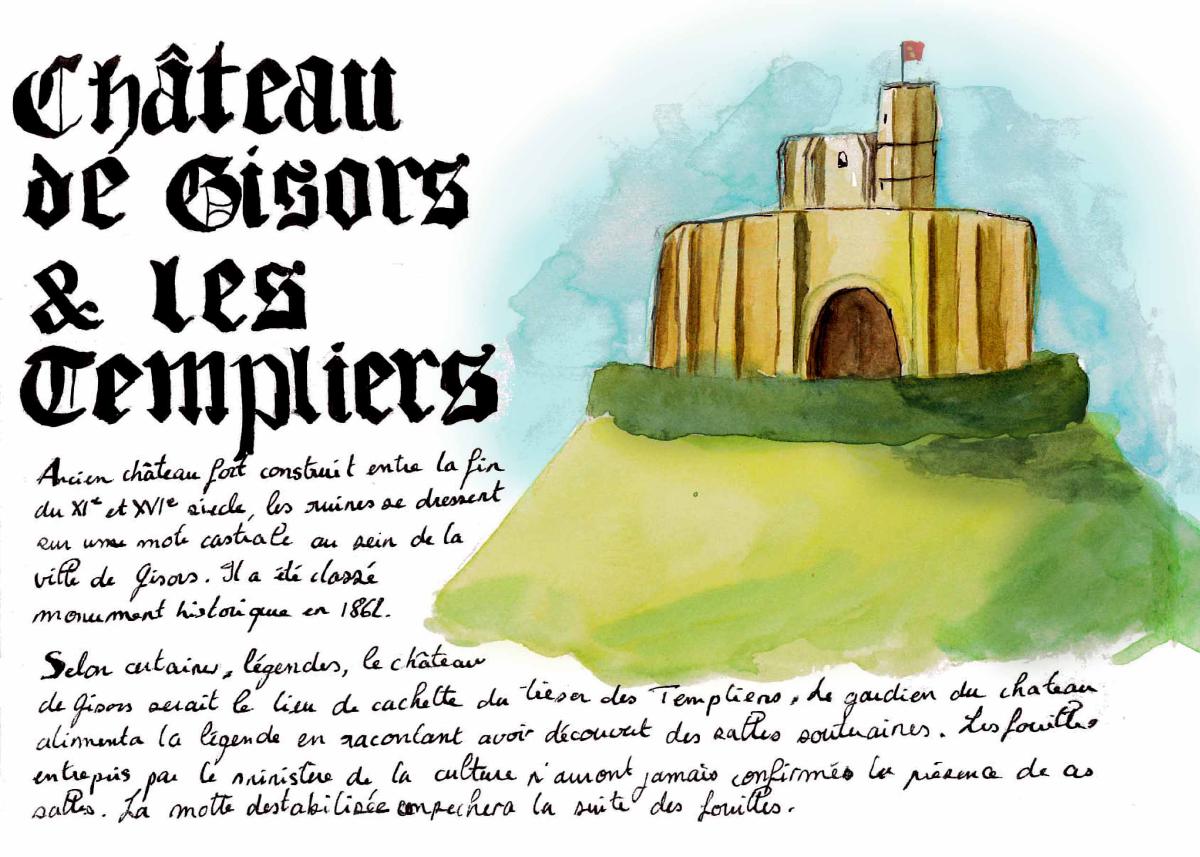 Château
de Gisors
& les
Templiers
Ancien château fort construit entre la fin
du XIe et XVIe siecle, les ruines se dressent
sur une mote castrale au sein de la
ville de Gisors. Il a été classé
monument historique en 1862.
Selon certaines, légendes, le château
de Gisors serait le lieu de cachette du trésor des Templiers. Le gardien du chateau
alimenta la légende en racontant avoir découvert des salles souteraines. Les fouilles
entrepris par le ministère de la culture n'auront jamais confirmés la présence de ces
salles. La motte destabilisée empechera la suite des fouilles.